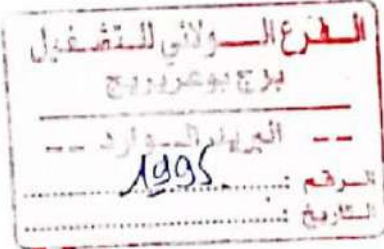 الفرع الولائي للتشغيل
برج بوعريريج
-- البريد الوارد --
الرقم : 1995
التاريخ :